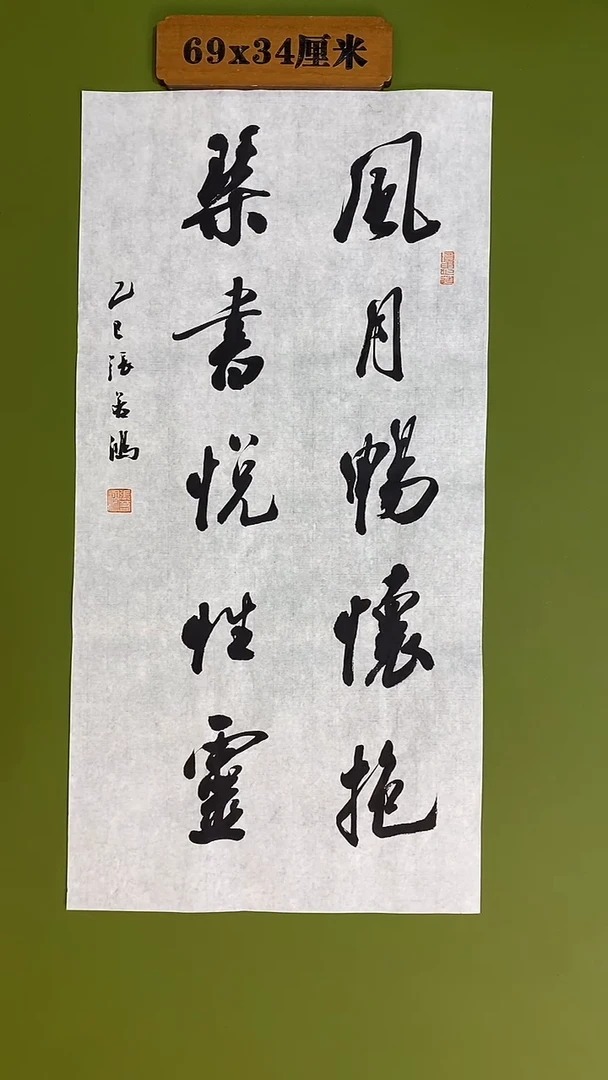 69x34厘米
風月暢懷抱
琴書悅性靈
乙巳張若鴻